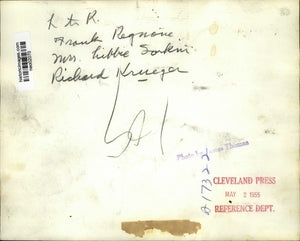 L to R.
Frank Pegnone.
Mrs. Libbie Sorkin.
Richard Krueger
Sat
Photo by James Thomas
21732
CLEVELAND PRESS
MAY 2 1955
REFERENCE DEPT.